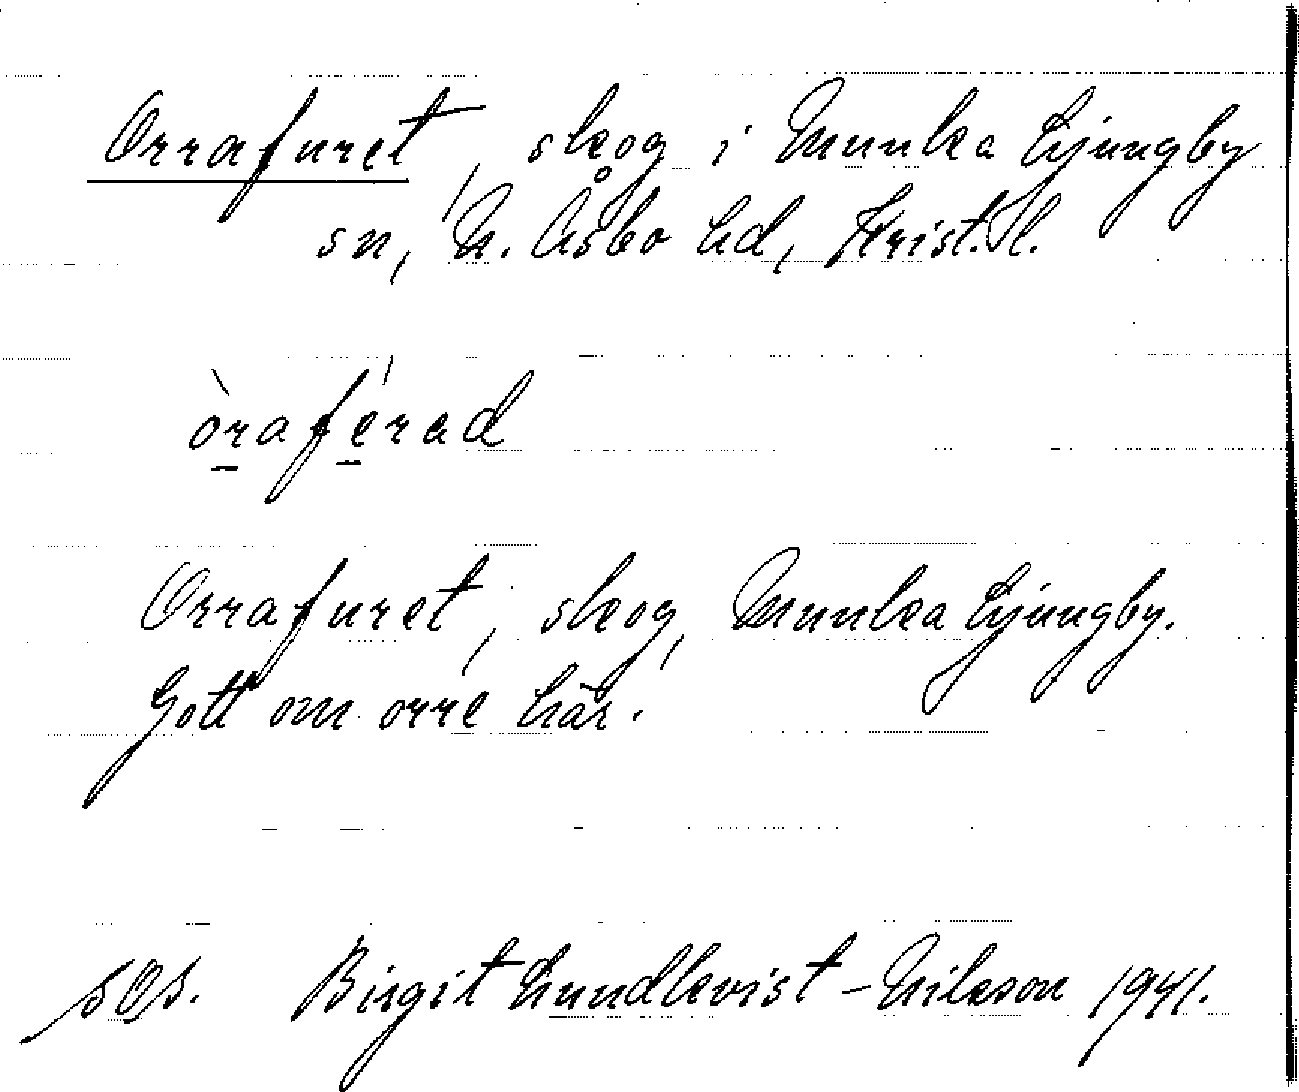 Orrafuret, skog i Munka Ljungby
sn, N. Åsbo hd, Krist. l.
òraférad
Orrafuret, skog, Munka Ljungby.
Gott om orre här.
Birgit Lundkvist-Nilsson 1941.